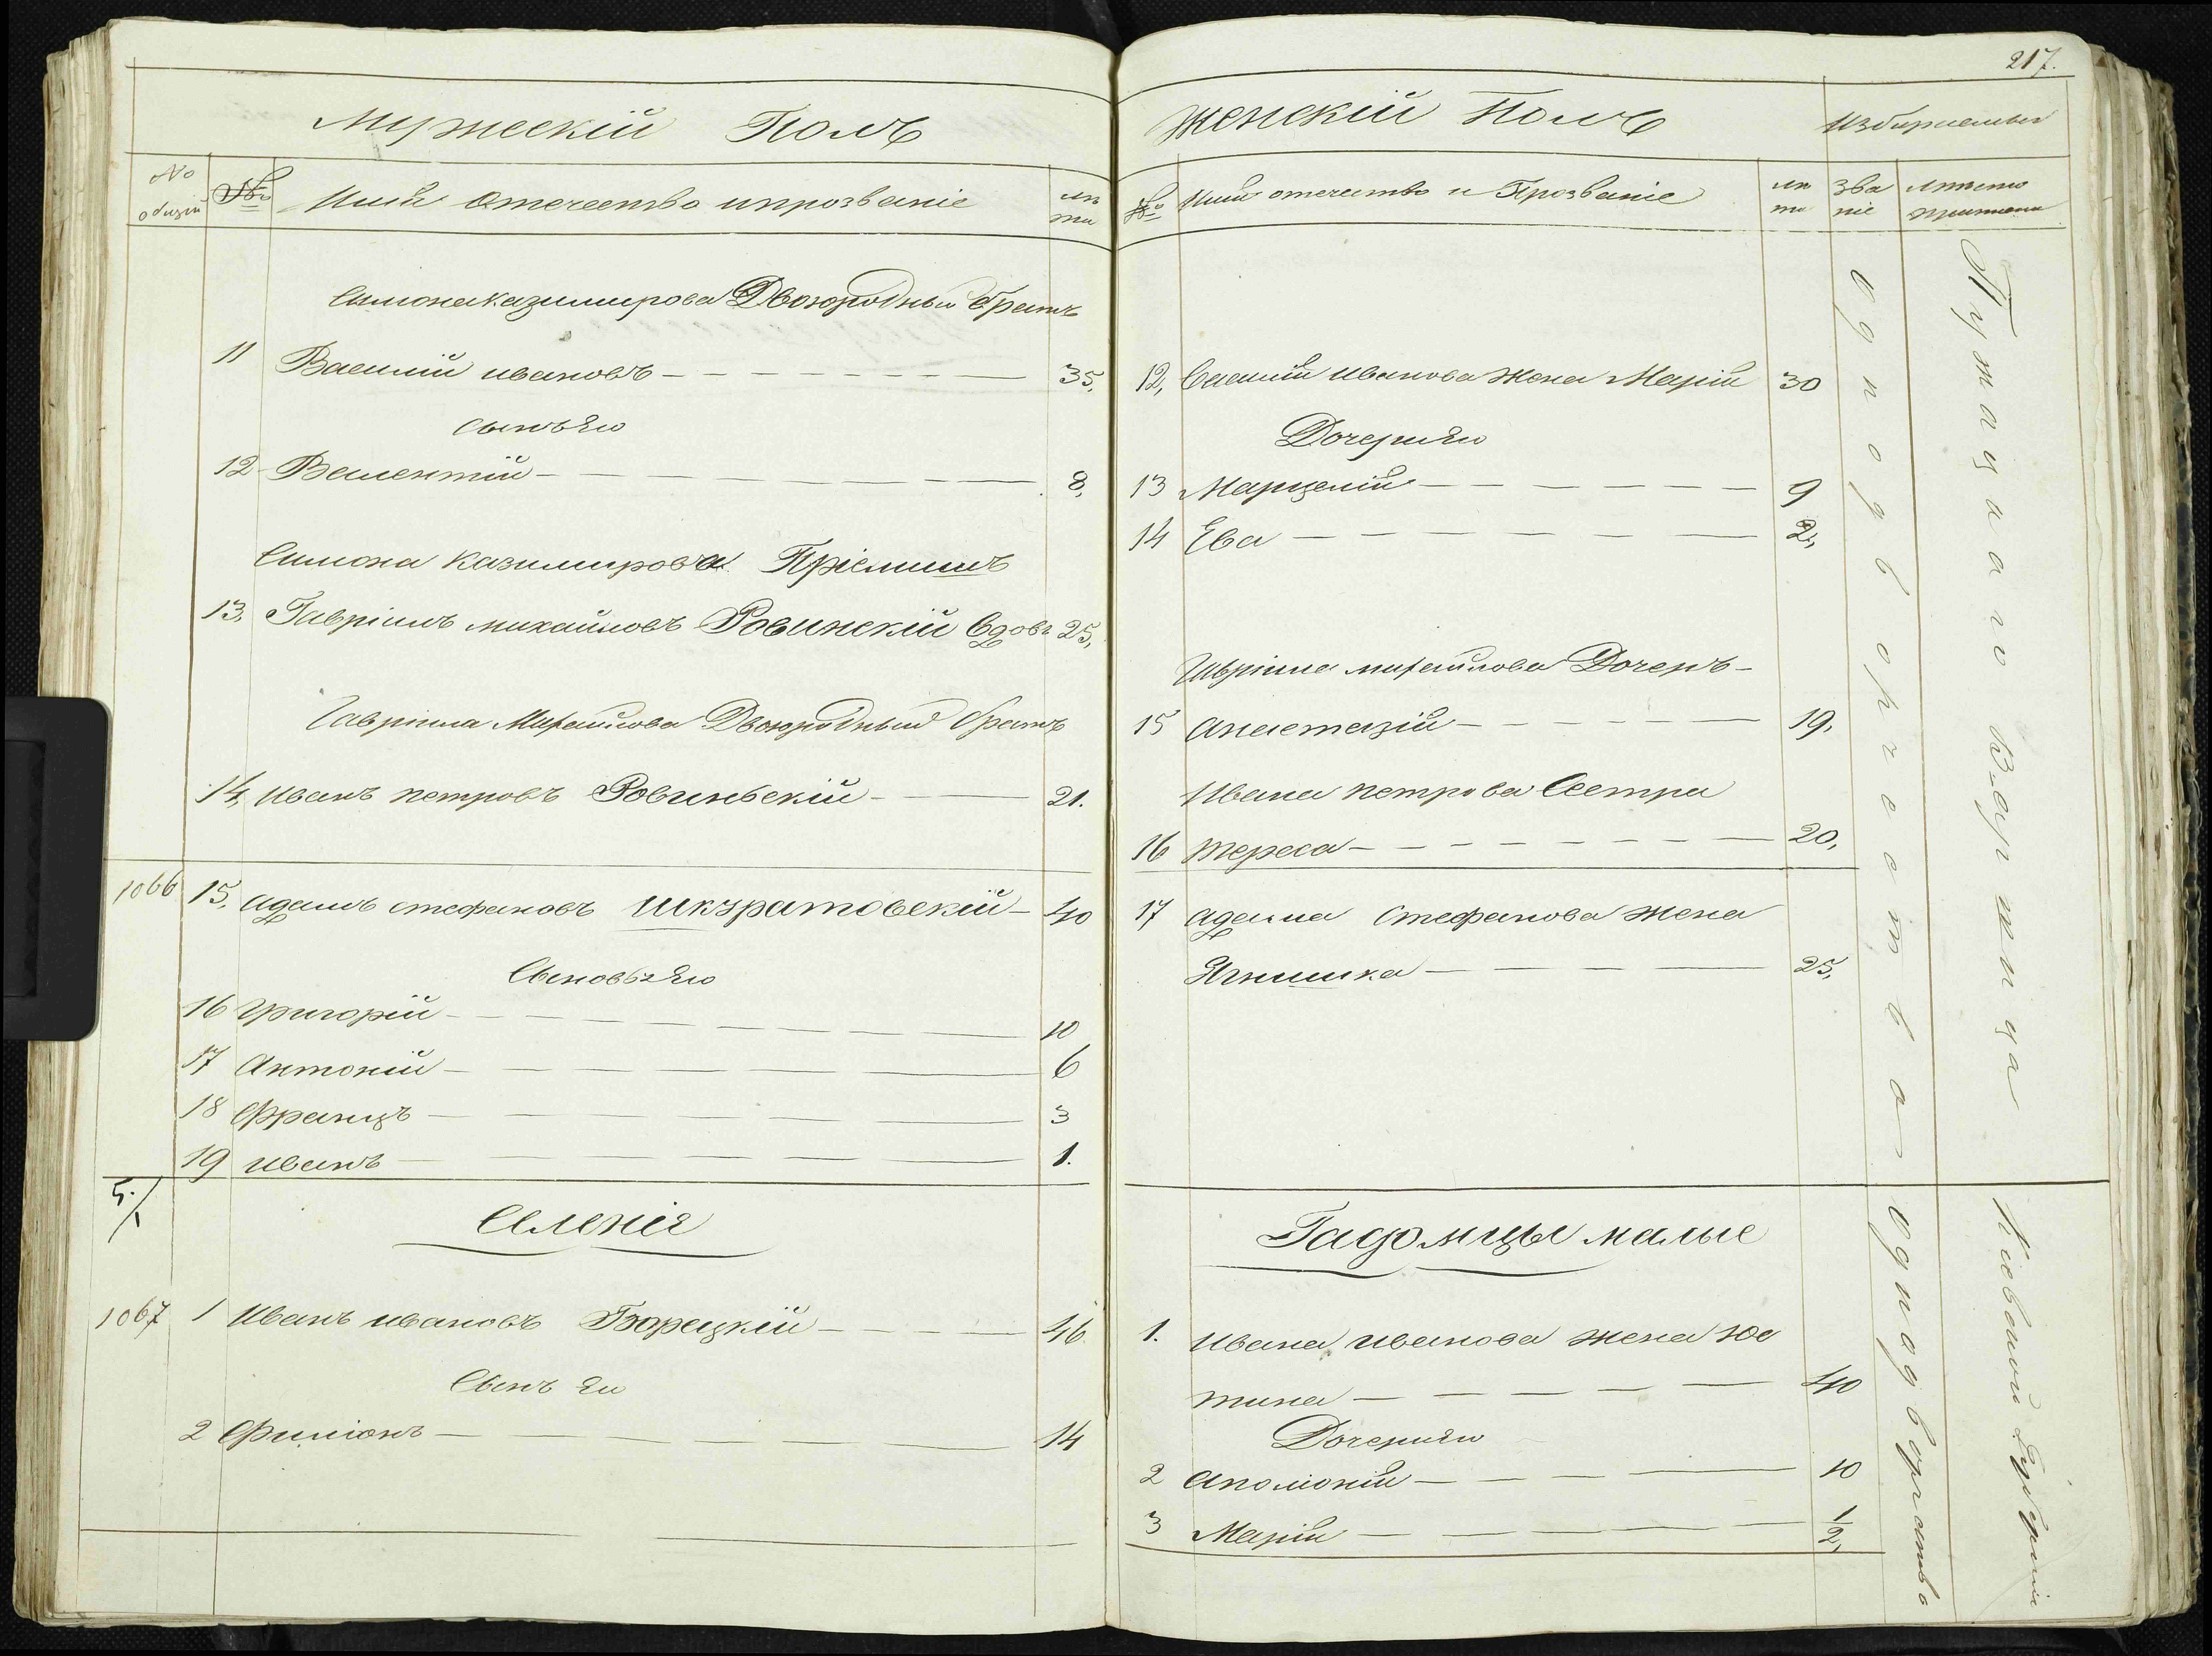 217.
Мужескій Полъ
№ общій
№
Имя отечество и прозваніе
лѣта
Симона Казимирова Двоюродный братъ
11 Василій Ивановъ 35,
сынъ Его
12 Валентій 8,
Симона Казимирова Пріемышъ
13, Гавріилъ Михайловъ Ровинскій Вдовъ 25,
Гавріила Михайлова Двоюродный братъ
14, Иванъ Петровъ Ровиньскій 21.
1066 15, Адамъ Стефановъ Шкуратовскій 40
Сыновья Его
16 Григорій 10
17 Антоній 6
18 Францъ 3
19 Иванъ 1.
5./1
Селенія
1067 1 Иванъ Ивановъ Гворецкій 46.
Сынъ Его
2 Филіонъ 14
Женскій Полъ
Избираемые
№
Имя отечество и Прозваніе
лѣта
Званіе
Мѣсто
12, Василія Иванова Жена Марія 30
Дочери Его
13 Марцелія 9
14 Ева 2,
Гавріила Михайлова Дочеръ
15 Анастазія 19,
Ивана Петрова Сестра
16 Тереса 20,
17 Адама Стефанова Жена
Ягнишка 25,
Гадомцы малые
1. Ивана Иванова жена Юс
тина 40
Дочери Его
2 Аполонія 10
3 Марія 1/2,
Однодворчества
Гужацкаго В-Ольшица
Однодворчество
Кіевской Губерніи